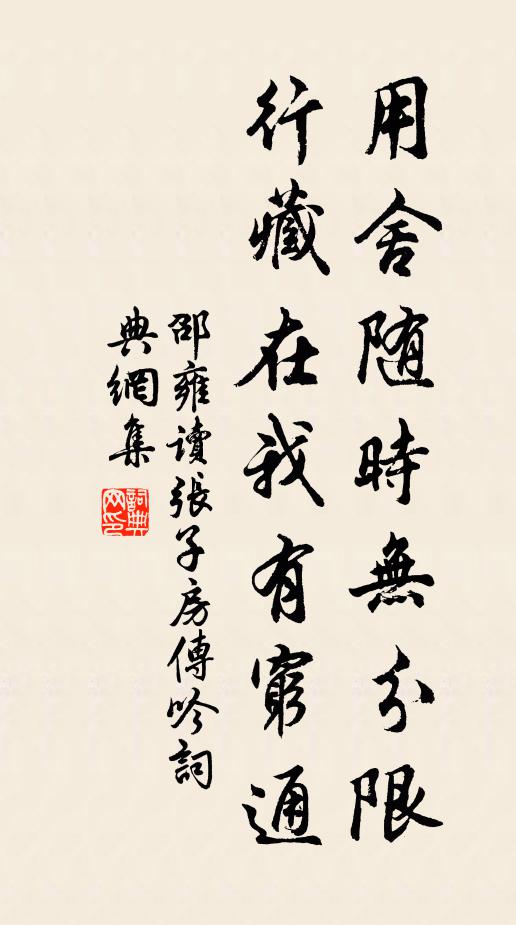 用舍随時無分限
行藏在我有窮通
邵雍讀張子房傳吟詞
典網集
詞典网印